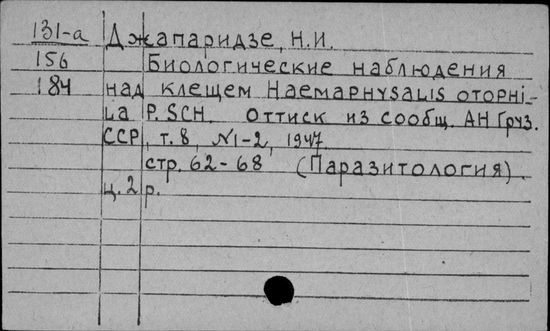 131-а Джапаридзе, Н.И.
156 Биологические наблюдения
184 над клещем Haemaphysalis otophi-
la P. Sch. Оттиск из сообщ. АН Груз.
ССР, т. 8, №1-2, 1947.
стр. 62-68 (Паразитология).
ц. 2 р.